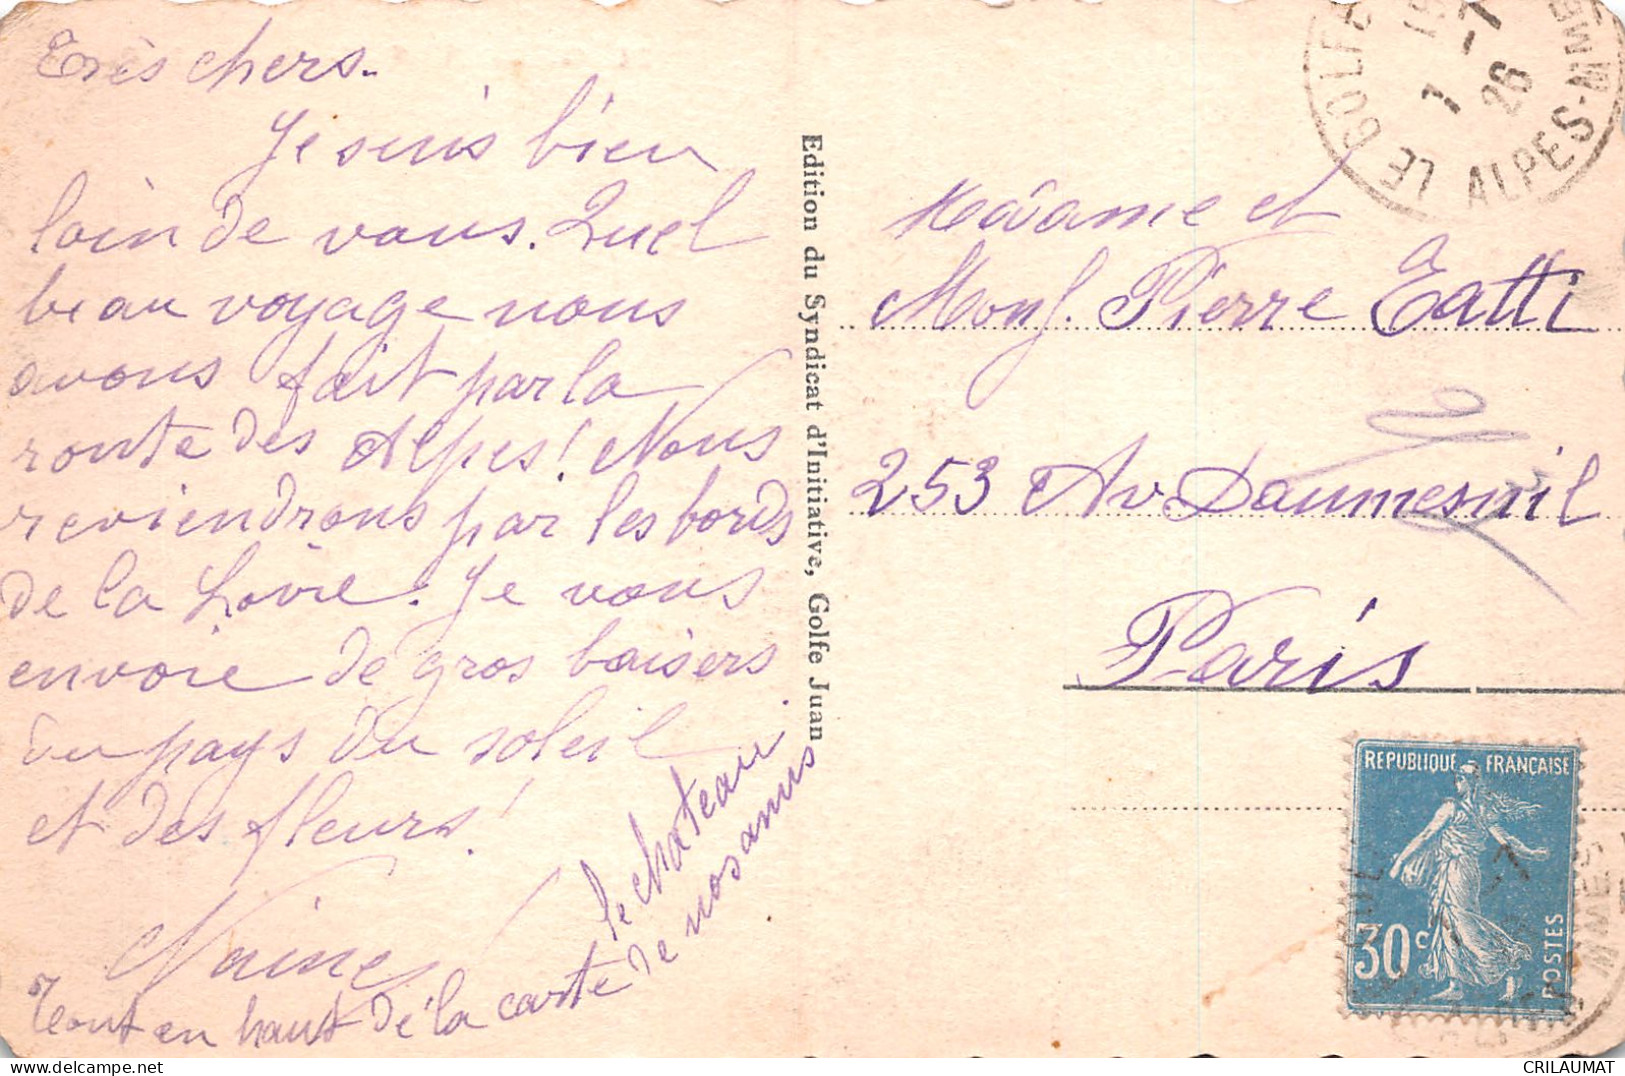 Très chers.
Je suis bien
loin de vous. Quel
beau voyage nous
avons fait par la
route des Alpes! Nous
reviendrons par les bords
de la Loire. Je vous
envoie de gros baisers
du pays du soleil
et des fleurs!
Naine
Tout en haut de la carte le château
de nos amis
Edition du Syndicat d'Initiative, Golfe Juan
LE GOLFE
ALPES-MME
7 -7
26
Madame et
Mons. Pierre Tatti
253 Av Daumesnil
Paris
REPUBLIQUE FRANÇAISE
30c
POSTES
CRILAUMAT